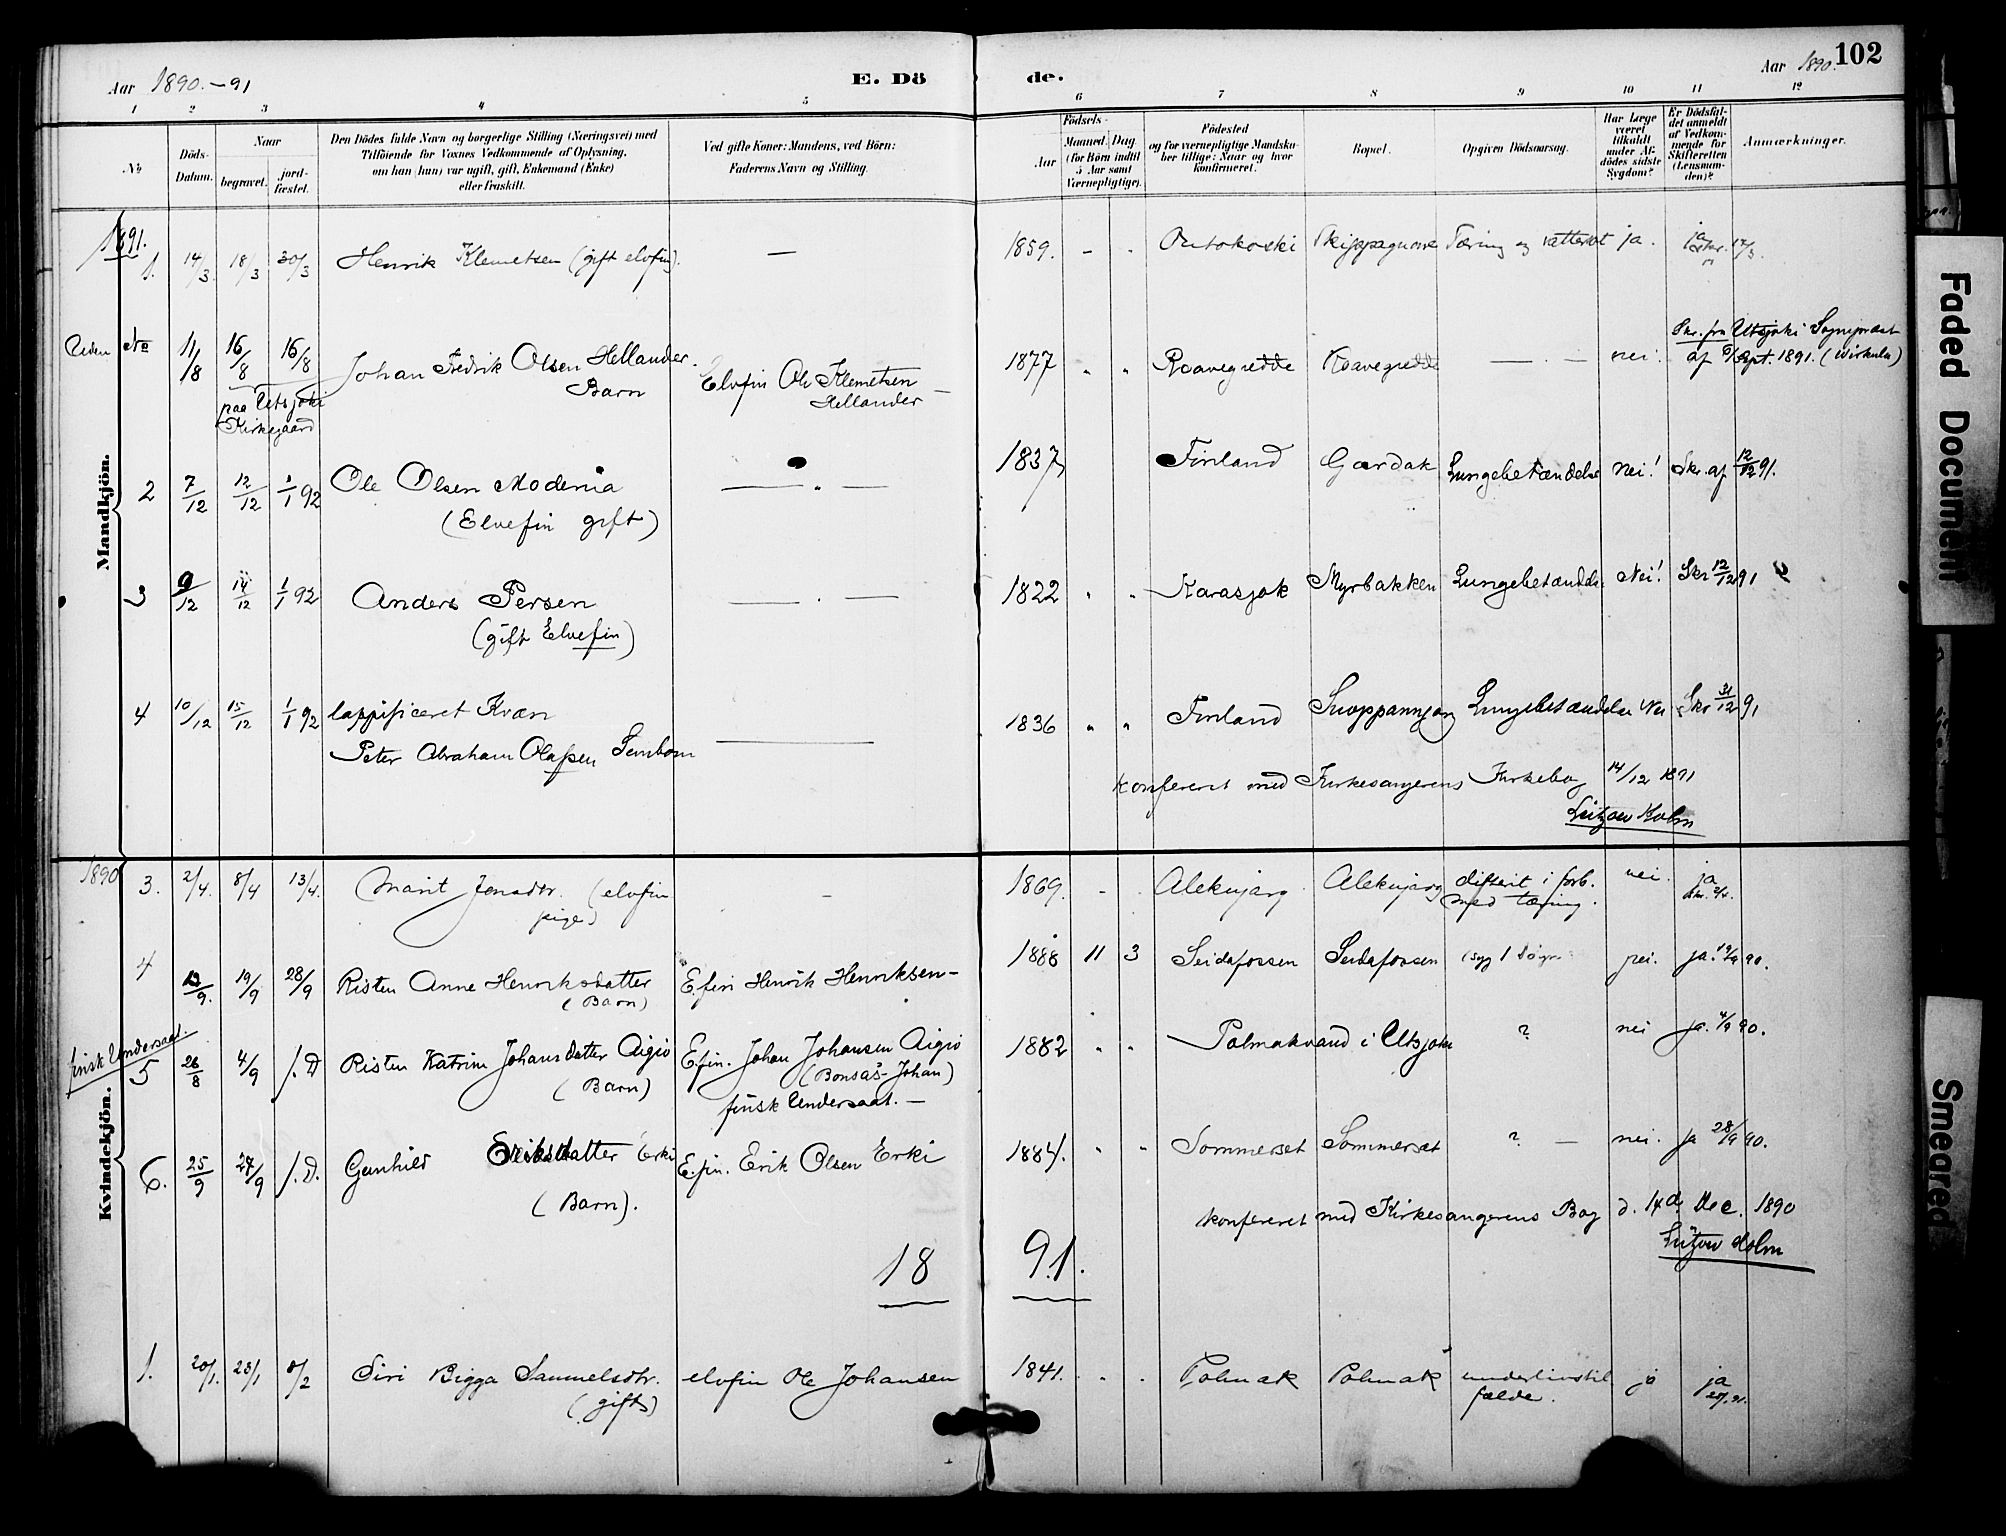 Aar 1890.-91
E. Dö
de.
Aar 1890. 102
1 2 3 4 5 6 7 8 9 10 11 12
No
Döds-Datum.
Naar
begravet.
jord-fæstet.
Den Dödes fulde Navn og borgerlige Stilling (Næringsvei) med
Tilföiende for Voxnes Vedkommende af Oplysning,
om han (hun) var ugift, gift, Enkemand (Enke)
eller fraskilt.
Ved gifte Koner: Mandens, ved Börn:
Faderens Navn og Stilling.
Födsels-
Aar
Maaned. Dag
(for Börn indtil
5 Aar samt
Værnepligtige).
Födested
og for værnepligtige Mandsku-
ber tillige: Naar og hvor
konfirmeret.
Bopæl.
Opgiven Dödsaarsag.
Har Læge
været
tilkaldt
under Af-
dödes sidste
Sygdom?
Er Dödsfal-
det anmeldt
af Vedkom-
mende for
Skifteretten
(Lensman-
den)?
Anmærkninger.
Mandkjön.
1891.
1. 14/3. 18/3 30/3 Henrik Klemetsen (gift elvfin). — 1859. - . Outokoski Skippagurra Tæring og ja. ja 17/3.
Uden No 11/8 16/8 16/8 Johan Fredrik Olsen Hellander. Elvfin Ole Klemetsen 1877 " " Roavegredde Roavegredde — . — nei. Skr. fra Utsjoki Sognepræst
Barn Hellander — af 6/Sept. 1891. (
paa Utsjoki
Kirkegaard
2 7/12 12/12 1/1 92 Ole Olsen Modenia — " — 1837 Finland Gardak Lungebetændelse Nei! Skr. af 12/12 91.
(Elvefin gift)
3 9/12 14/12 1/1 92 Anders Persen — . — 1822 " " Karasjok Myrbakken Lungebetændelse Nei! Skr 12/12 91
(gift Elvefin)
4 10/12 15/12 1/1 92 lappificeret Kvæn
Peter Abraham Olassen — 1836 " " Finland Lungebetændelse Nei Skr 31/12 91
Konfereret med Kirkesangerens Kirkebog 14/12 1891
Lützow Holm
Kvindekjön.
1890
3. 2/4. 8/4 13/4. Marit Jonsdtr. (elvfin - 1869. - . Aleknjarg Aleknjarg difterit i forb. nei. ja
pige) med tæring. skr. 2/4.
4 13/9. 19/9 28/9 Risten Anne Henriksdatter E.fin Henrik Henriksen - 1888 11 3 Seidafossen Seidafossen (syg 1 Døgn nei. ja. 19/9 90.
(Barn)
finsk Undersaat.
5 26/8 4/9 f. D Risten Katrine Johansdatter Aigio E.fin. Johan Johansen Aigio 1882 " " Polmakvand i Utsjoki ? nei ja. 4/9 90.
(Barn) (Bonsas-Johan)
finsk Undersaat. —
6. 25/9 27/9 f. D. Gunhild Eriksdatter Erki E.fin. Erik Olsen Erki 1884. " " Sommerset Sommerset ? — nei. ja 28/9 90.
(Barn).
konfereret med Kirkesangerens Bog d. 14d. Dec. 1890
Lützow Holm
18 91.
1. 20/1. 28/1 8/2 Siri Bigga Samuelsdtr. elvfin Ole Johansen 1841. . . Polmak Polmak underlivstil ja ja
(gift) fælde.
Faded Document
Smeared